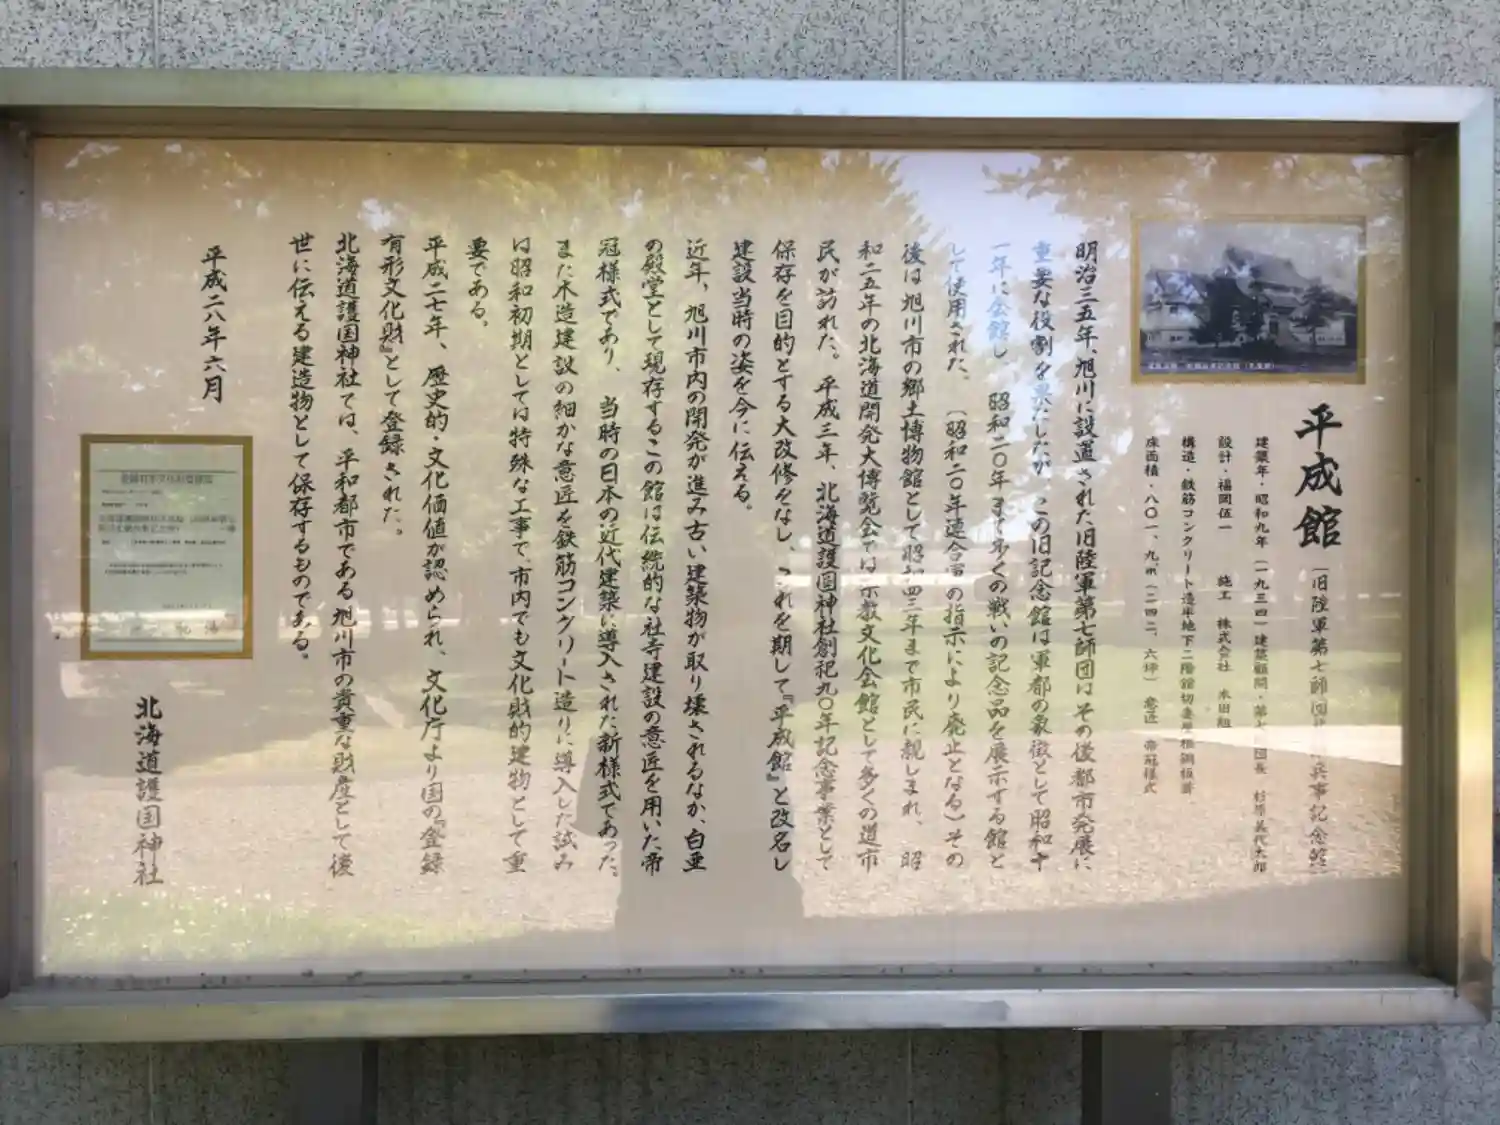 平成館
（旧陸軍第七師団
兵事記念館
建築年・昭和九年（一九三四）建築顧問・第七
団長 杉原美代太郎
設計・福岡伍一 施工 株式会社
構造・鉄筋コンクリート造半地下二階建切妻屋根銅板葺
床面積・八〇一、九㎡（二四二、六坪）意匠 帝冠様式
明治三五年、旭川に設置された旧陸軍第七師団はその後都市発展に
重要な役割を果たしたが、この旧記念館は軍都の象徴として昭和十
一年に会館し、昭和二〇年まで多くの戦いの記念品を展示する館と
して使用された。（昭和二〇年連合軍の指示により廃止となる）その
後は旭川市の郷土博物館として昭和四三年まで市民に親しまれ、昭
和二五年の北海道開発大博覧会では宗教文化会館として多くの道市
民が訪れた。平成三年、北海道護国神社創祀九〇年記念事業として
保存を目的とする大改修をなし、これを期して『平成館』と改名し
建設当時の姿を今に伝える。
近年、旭川市内の開発が進み古い建築物が取り壊されるなか、白亜
の殿堂として現存するこの館は伝統的な社寺建設の意匠を用いた帝
冠様式であり、当時の日本の近代建築に導入された新様式であった。
また木造建設の細かな意匠を鉄筋コンクリート造りに導入した試み
は昭和初期としては特殊な工事で、市内でも文化財的建物として重
要である。
平成二七年、歴史的・文化価値が認められ、文化庁より国の『登録
有形文化財』として登録された。
北海道護国神社では、平和都市である旭川市の貴重な財産として後
世に伝える建造物として保存するものである。
平成二八年六月
北海道護国神社